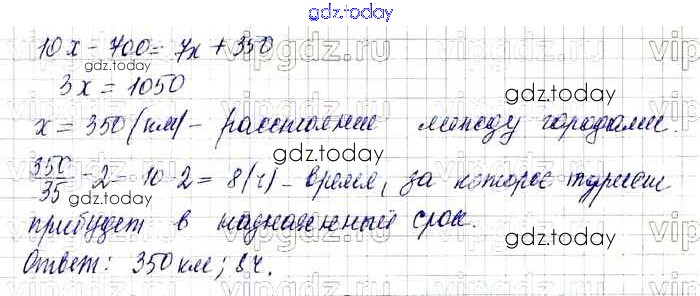 gdz.today
10x - 700 = 7x + 350
gdz.today
3x = 1050
gdz.today
x = 350 (км) - расстояние между городами.
gdz.today
350/35 - 2 = 10 - 2 = 8 (ч) - время, за которое турист
gdz.today
прибудет в назначенный срок.
gdz.today
Ответ: 350 км; 8 ч.
gdz.today
vipgdz.ru